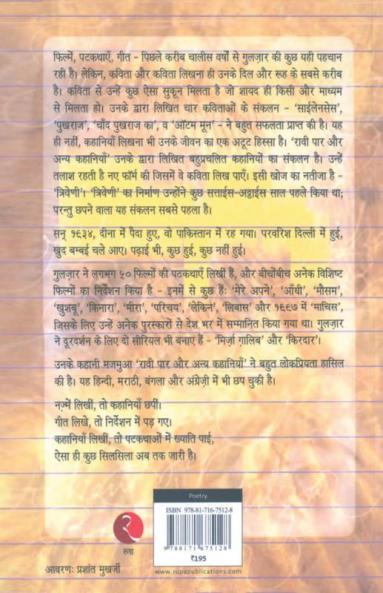 फिल्में, पटकथाएँ, गीत - पिछले करीब चालीस वर्षों से गुलज़ार की कुछ यही पहचान
रही है। लेकिन, कविता और कविता लिखना ही उनके दिल और रूह के सबसे करीब
है। कविता से उन्हें कुछ ऐसा सुकून मिलता है जो शायद ही किसी और माध्यम
से मिलता हो। उनके द्वारा लिखित चार कविताओं के संकलन - 'साईलेनसेस',
'पुखराज', 'चाँद पुखराज का', व 'ऑटम मून' - ने बहुत सफलता प्राप्त की है। यह
ही नहीं, कहानियाँ लिखना भी उनके जीवन का एक अटूट हिस्सा है। 'रावी पार और
अन्य कहानियाँ' उनके द्वारा लिखित बहुप्रचलित कहानियों का संकलन है। उन्हें
तलाश रहती है नए फॉर्म की जिसमें वे कविता लिख पाएँ। इसी खोज का नतीजा है -
'त्रिवेणी'। 'त्रिवेणी' का निर्माण उन्होंने कुछ सत्ताईस-अट्ठाईस साल पहले किया था;
परन्तु छपने वाला यह संकलन सबसे पहला है।
सन् १९३४, दीना में पैदा हुए, वो पाकिस्तान में रह गया। परवरिश दिल्ली में हुई,
खुद बम्बई चले आए। पढ़ाई भी, कुछ हुई, कुछ नहीं हुई।
गुलज़ार ने लगभग ५० फिल्मों की पटकथाएँ लिखीं हैं, और बीचोंबीच अनेक विशिष्ट
फिल्मों का निर्देशन किया है - इनमें से कुछ हैं: 'मेरे अपने', 'आँधी', 'मौसम',
'खुशबू', 'किनारा', 'मीरा', 'परिचय', 'लेकिन', 'लिबास' और १९९७ में 'माचिस',
जिसके लिए उन्हें अनेक पुरस्कारों से देश भर में सम्मानित किया गया था। गुलज़ार
ने दूरदर्शन के लिए दो सीरियल भी बनाए हैं - 'मिर्ज़ा ग़ालिब' और 'किरदार'।
उनके कहानी मजमुआ 'रावी पार और अन्य कहानियाँ' ने बहुत लोकप्रियता हासिल
की है। यह हिन्दी, मराठी, बंगला और अंग्रेज़ी में भी छप चुकी है।
नज़्में लिखीं, तो कहानियाँ छपीं।
गीत लिखे, तो निर्देशन में पड़ गए।
कहानियाँ लिखीं, तो पटकथाओं में ख्याति पाई,
ऐसा ही कुछ सिलसिला अब तक जारी है।
Poetry
ISBN 978-81-716-7512-8
9 788171 675128
₹195
www.rupapublications.com
रूपा
आवरण: प्रशांत मुखर्जी